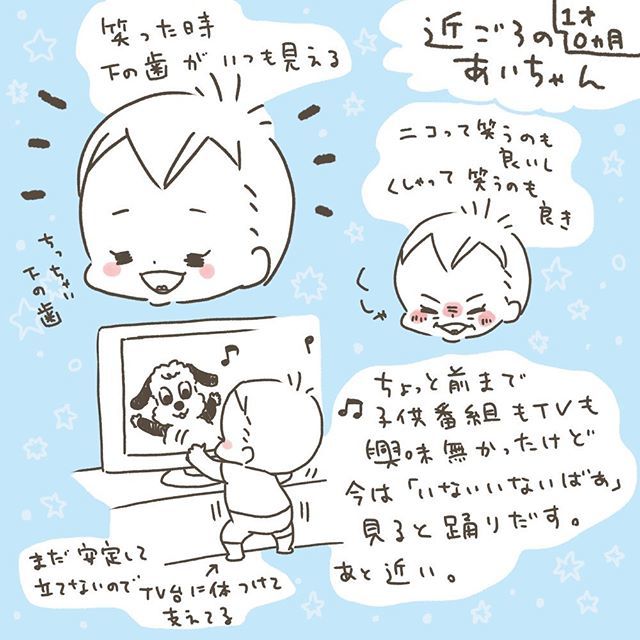 近ごろの
1才
10ヵ月
あいちゃん
笑った時
下の歯がいつも見える
ちっちゃい
下の歯
ニコって笑うのも
良いし
くしゃって笑うのも
良き
くしゃ
ちょっと前まで
子供番組もTVも
興味無かったけど
今は「いないいないばあ」
見ると踊りだす。
あと近い。
まだ安定して
立てないので
TV台に体つけて
支えてる